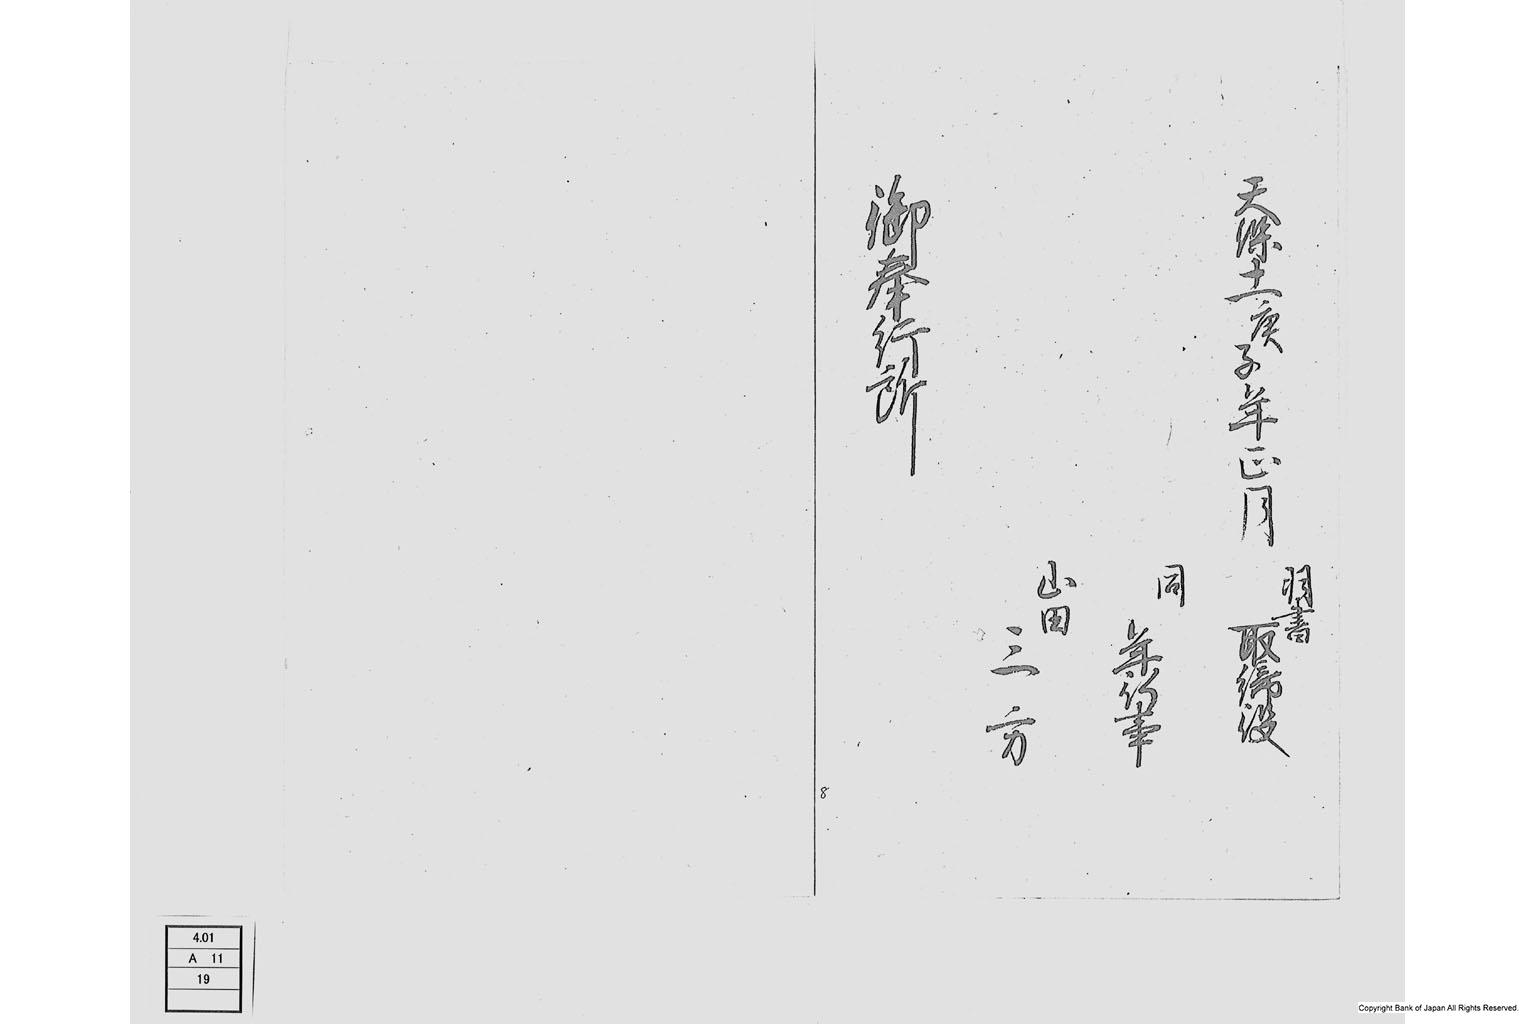 天保十一庚子年正月
羽書
取締役
同
年行事
山田
三方
御奉行所
8
4.01
A 11
19
Copyright Bank of Japan All Rights Reserved.